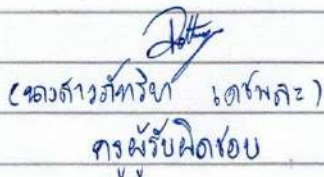 (นางสาวภัทริยา เดชพละ)
ครูผู้รับผิดชอบ